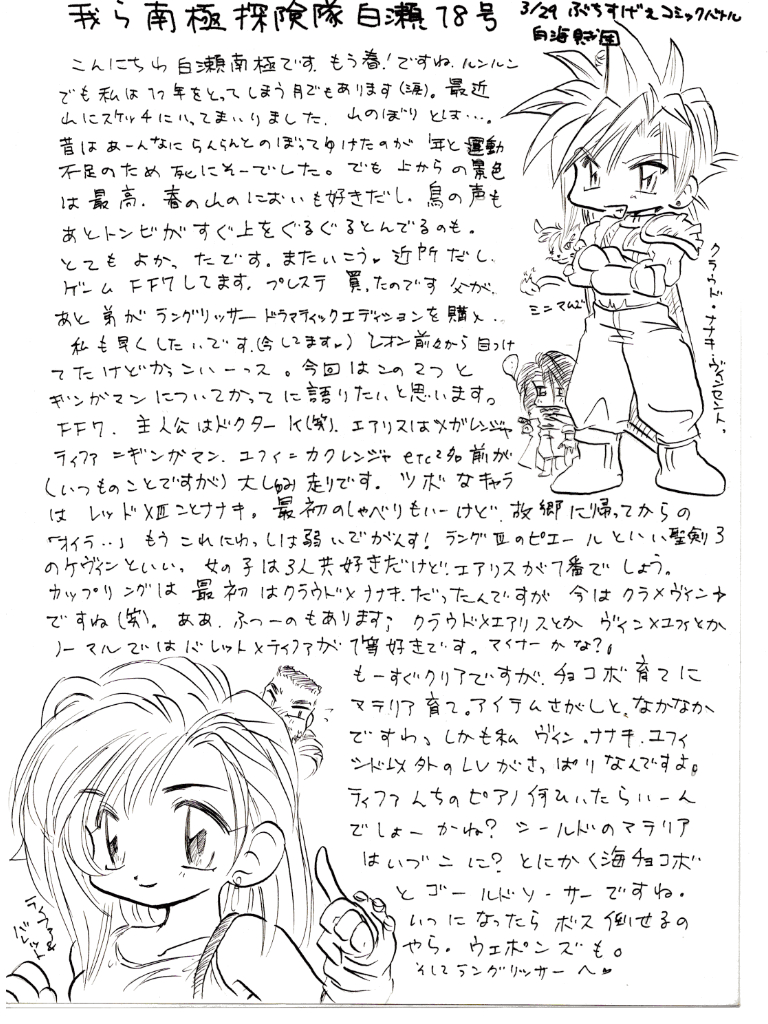 我ら南極探険隊白瀬78号
3/29 ぶちすげえコミックバトル
白海賊団
こんにちわ 白瀬南極です。もう春!ですね。ルンルン
でも私は1つ年をとってしまう月でもあります(涙)。最近
山にスケッチにいってまいりました。山のぼりとは…。
昔はあーんなにらんらんとのぼってゆけたのが 年と運動
不足のため死にそーでした。でも上からの景色
は最高。春の山のにおいも好きだし、鳥の声も
あとトンビがすぐ上をぐるぐるとんでるのも。
とてもよかったです。またいこう♥近所だし、
ゲーム FF7してます。プレステ買ったのです父が、
あと弟がラングリッサードラマティックエディションを購入…
私も早くしたいです。(今してます♥)レオン前々から目つけ
てたけどかっこいーっス。今回はこの2つと
ギンガマンについてかってに語りたいと思います。
FF7、主人公はドクターK(笑)、エアリスはメガレンジャ
ティファ=ギンガマン、ユフィ=カクレンジャ etcと名前が
(いつものことですが)大しゅみ走りです。ツボなキャラ
は レッドXⅢことナナキ。最初のしゃべりもいーけど、故郷に帰ってからの
「オイラ‥」もうこれにわっしは弱いでがんす!ラングⅢのピエールといい聖剣3
のケヴィンといい。女の子は3人共好きだけど、エアリスが1番でしょう。
カップリングは 最初はクラウド×ナナキ、だったんですが 今はクラ×ヴィン
ですね(笑)。ああ、ふつーのもあります; クラウド×エアリスとか ヴィン×ユフィとか
ノーマルではバレット×ティファが1等好きです。マイナーかな?。
もーすぐクリアですが、チョコボ育てに
マテリア育て。アイテムさがしと、なかなか
ですわ、しかも私 ヴィン、ナナキ、ユフィ
シド以外のLVがさっぱりなんですよ。
ティファんちのピアノ何ひいたらいーん
でしょーかね? シールドのマテリア
はいづこに?とにかく海チョコボ
とゴールドソーサーですね。
いつになったらボス倒せるの
やら。ウェポンズも。
そしてラングリッサーへ♥
クラウド・ナナキ・ヴィンセント。
ミニマムズ
ティファ&
バレット